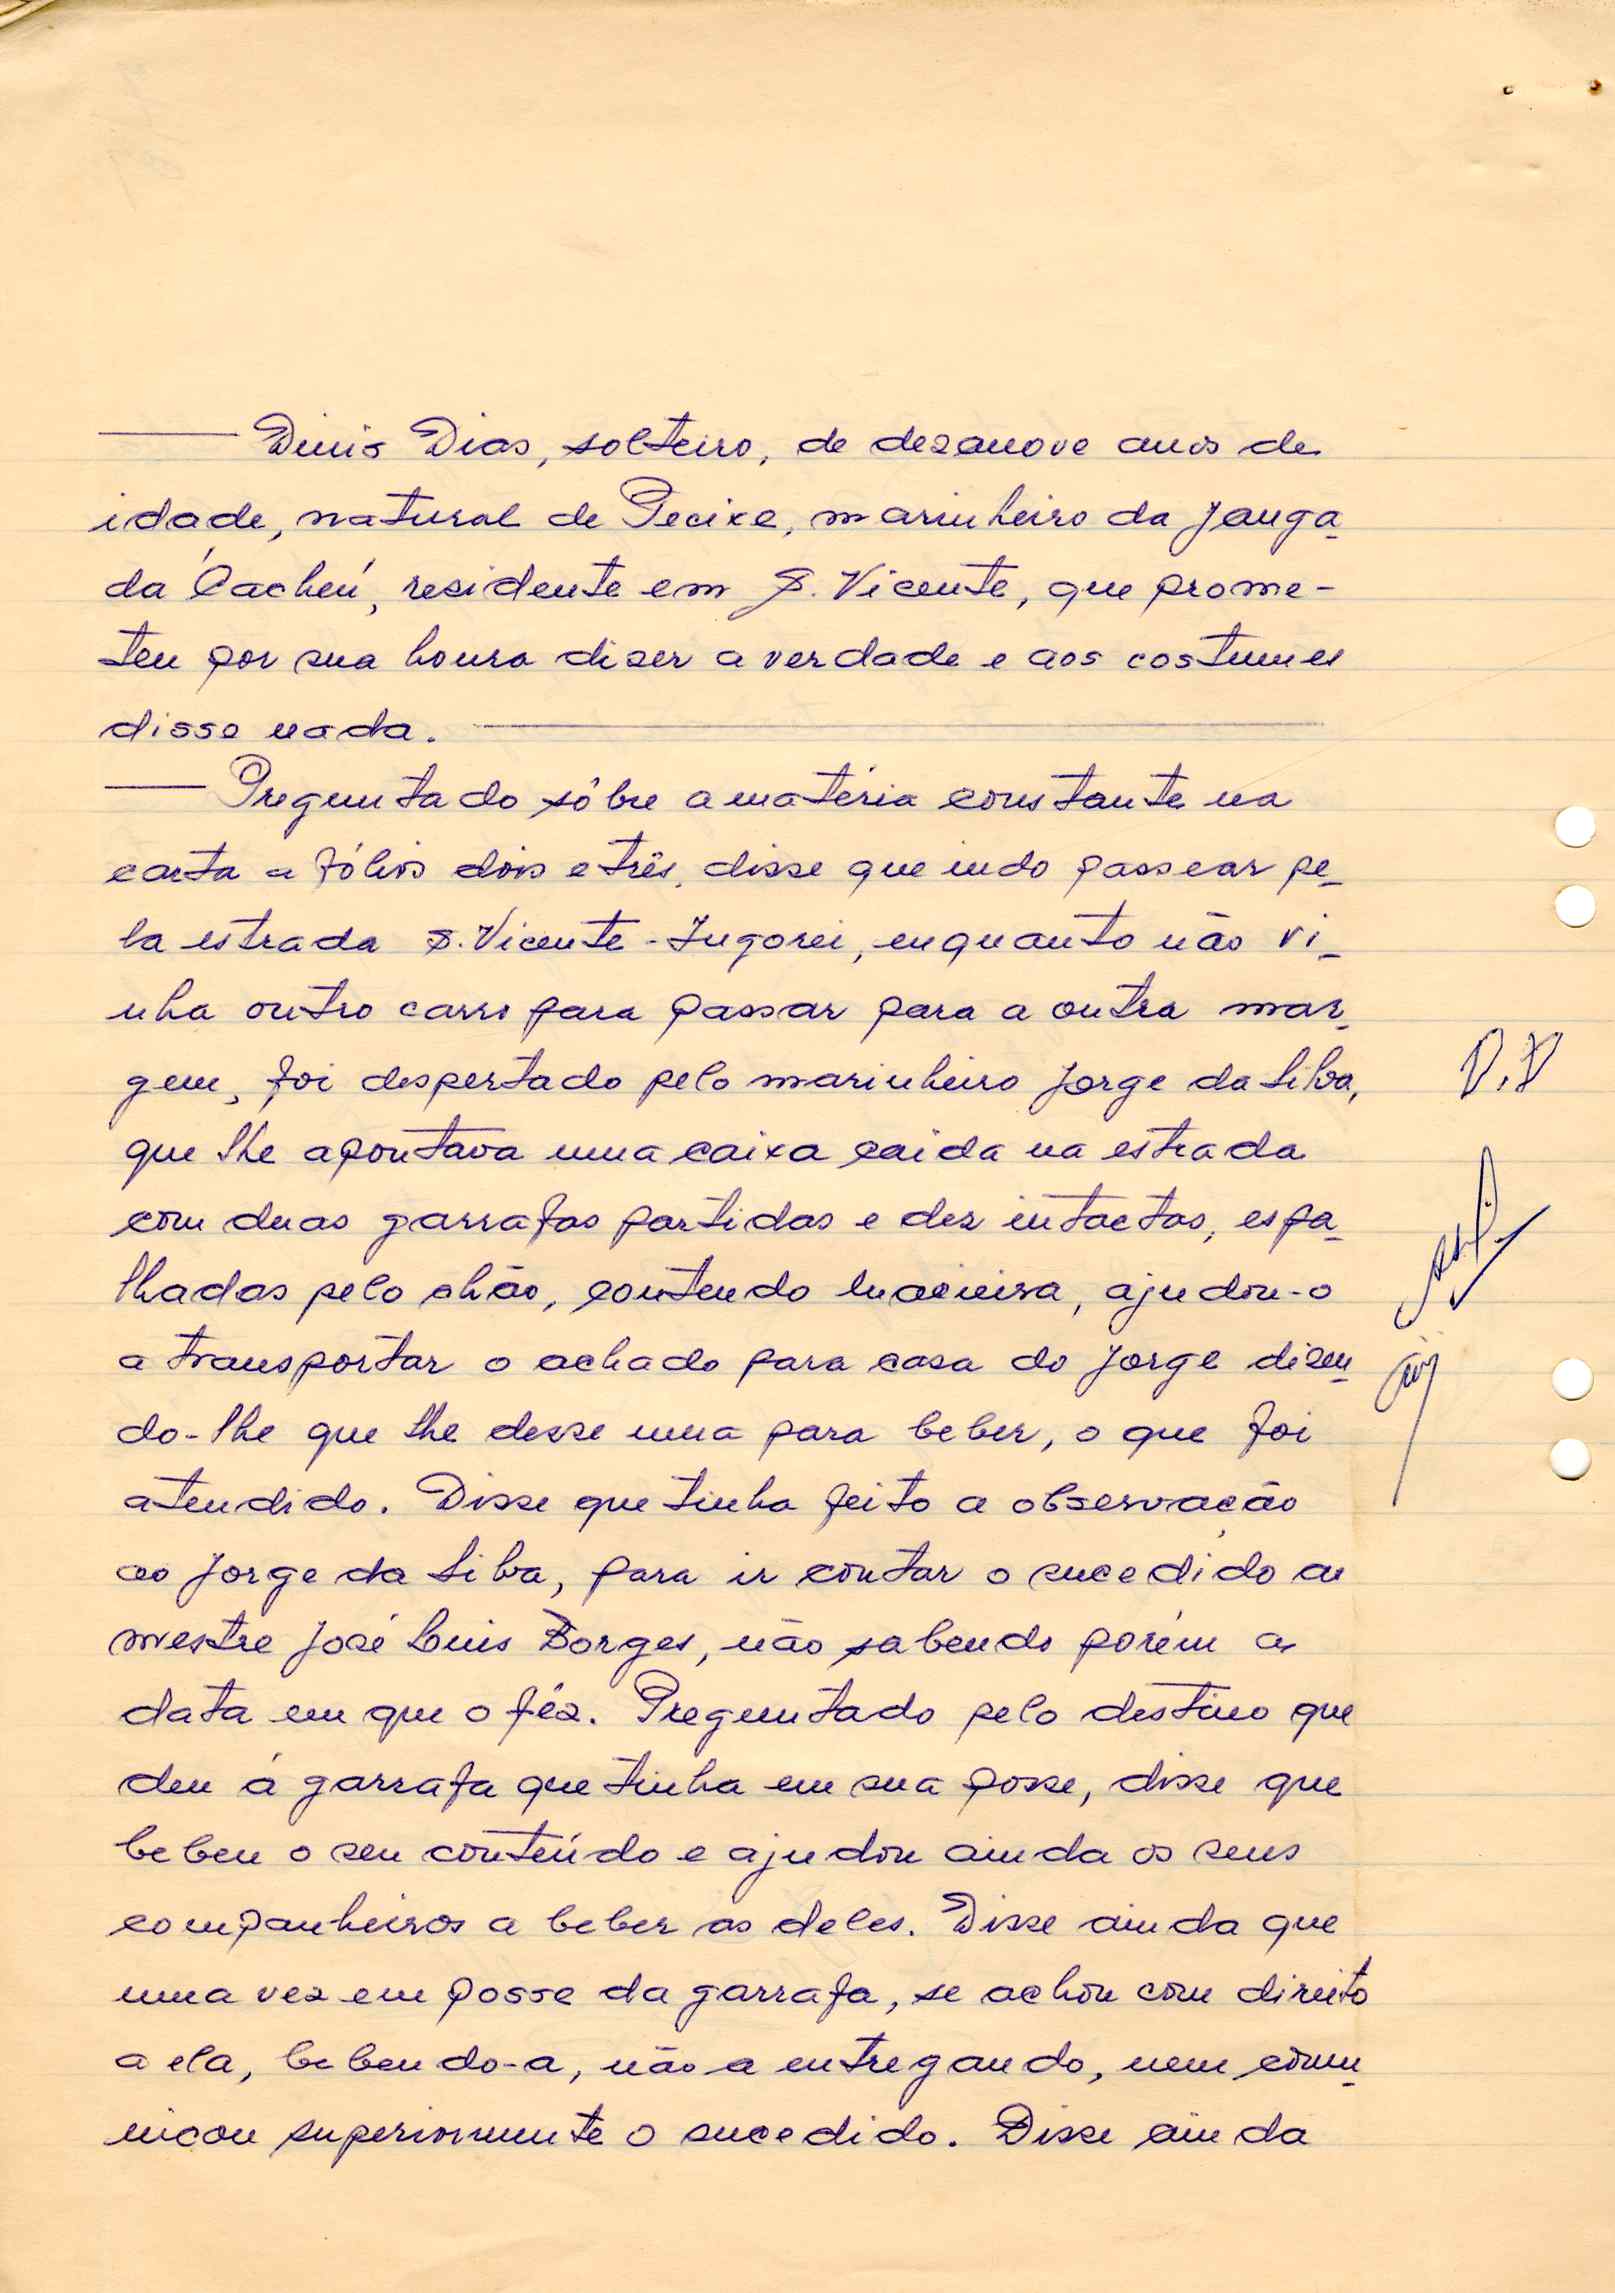 ——— Dinis Dias, solteiro, de dezanove anos de
idade, natural de Pecixe, marinheiro da janga-
da "Cacheu", residente em S. Vicente, que prome-
teu por sua honra dizer a verdade e aos costumes
disse nada. ———
——— Preguntado sôbre a matéria constante na
carta a fólios dois e três, disse que indo passear pe-
la estrada S. Vicente - Ingorei, enquanto não vi-
nha outro carro para passar para a outra mar-
gem, foi despertado pelo marinheiro Jorge da Silva,
que lhe apontava uma caixa caída na estrada
com duas garrafas partidas e dez intactas, espa-
lhadas pelo chão, contendo macieira, ajudou-o
a transportar o achado para casa do Jorge dizen-
do-lhe que lhe desse uma para beber, o que foi
atendido. Disse que tinha feito a observação
ao Jorge da Silva, para ir contar o sucedido ao
mestre José Luis Borges, não sabendo porém a
data em que o féz. Preguntado pelo destino que
deu á garrafa que tinha em sua posse, disse que
bebeu o seu conteúdo e ajudou ainda os seus
companheiros a beber as deles. Disse ainda que
uma vez em posse da garrafa, se achou com direito
a ela, bebendo-a, não a entregando, nem comu-
nicou superiormente o sucedido. Disse ainda
D.D